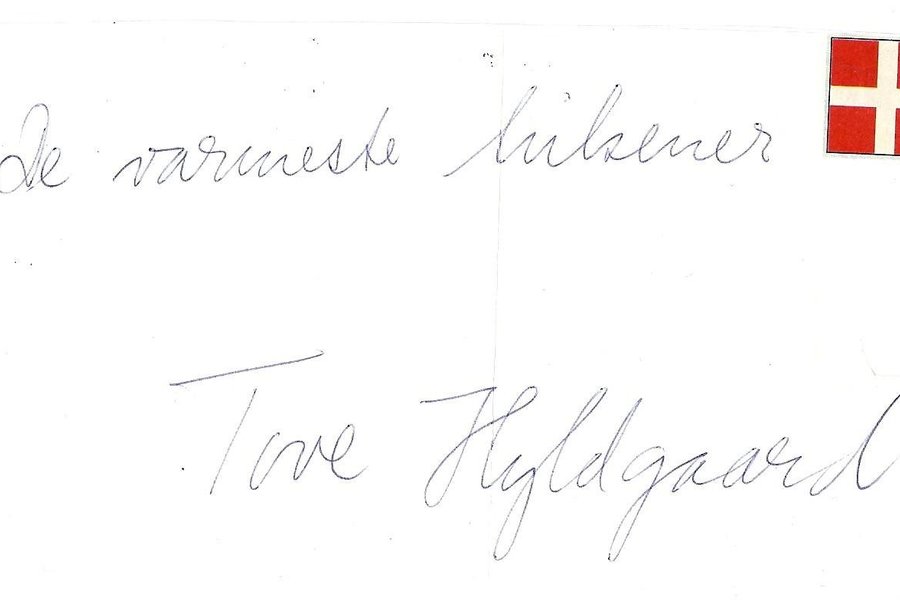 De varmeste hilsener
Tove Hyldgaard